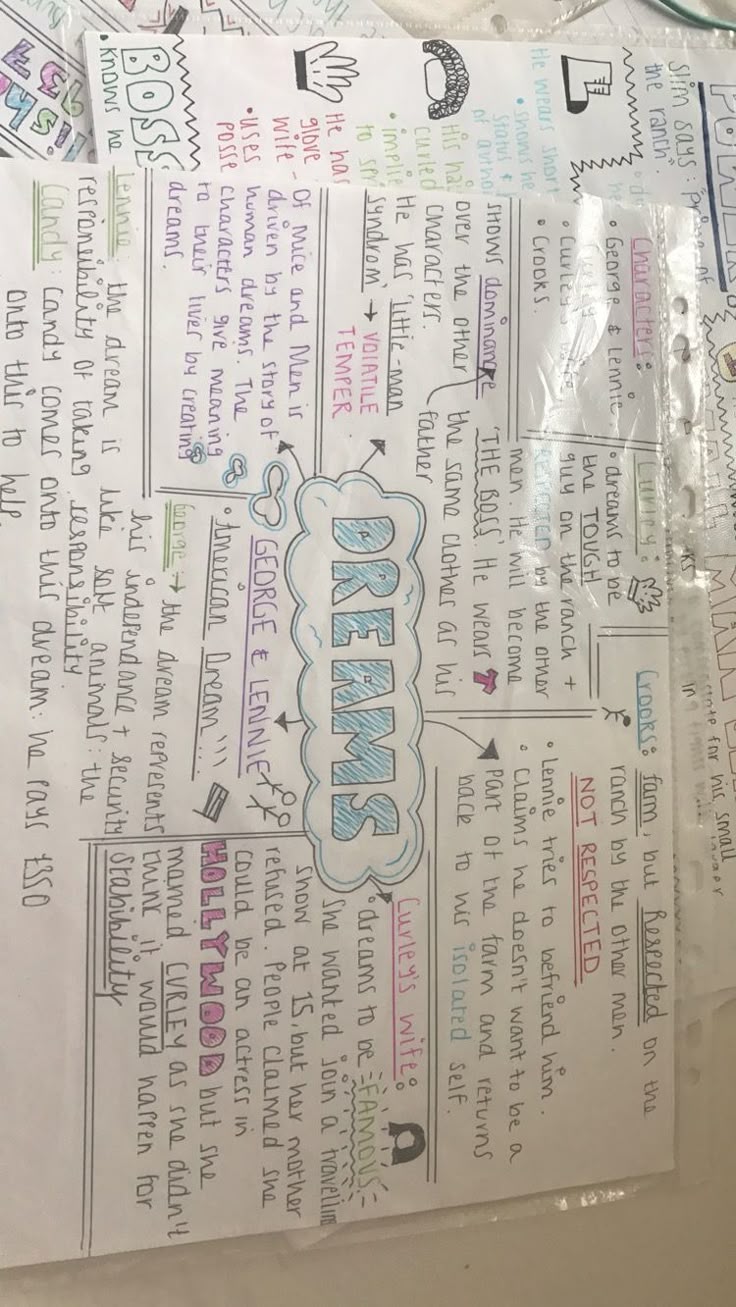 Characters:
• George & Lennie
• Curley
• Curley's wife
• Crooks.
Curley:
• dreams to be
the TOUGH
guy on the ranch +
RESPECTED by the other
men. He will become
'THE BOSS'. He wears
the same clothes as his
father
shows dominance
over the other
characters.
He has 'little-man
syndrom' → VOIATILE
TEMPER.
Crooks: farm, but Respected on the
ranch by the other men.
NOT RESPECTED
• Lennie tries to befriend him.
• Claims he doesn't want to be a
part of the farm and returns
back to his isolated self.
DREAMS
Of Mice and Men is
driven by the story of
human dreams. The
characters give meaning
to their lives by creating
dreams.
GEORGE & LENNIE
• American Dream'''.
George: → the dream represents
his independance + security
Lennie: the dream is like soft animals: the
responsibility of taking responsibility.
Candy: Candy comes onto this dream: he pays £350
onto this to help.
Curley's wife:
• dreams to be FAMOUS
She wanted join a travellin
show at 15, but her mother
refused. People claimed she
could be an actress in
HOLLYWOOD but she
married CURLEY as she didn't
think it would happen for
Stabibility
slim says:
the ranch".
He wears short
• shows he
status &
of autho
His hai
curled
• implie
to spr
He has
glove
wife -
• uses
posse
BOSS
• knows he
state for his small